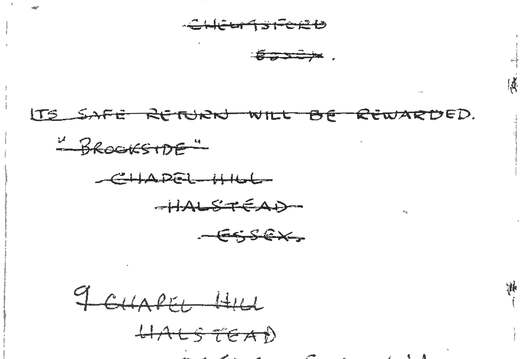 CHELMSFORD
ESSEX.
ITS SAFE RETURN WILL BE REWARDED.
"BROOKSIDE"
CHAPEL HILL
HALSTEAD
ESSEX.
9 CHAPEL HILL
HALSTEAD